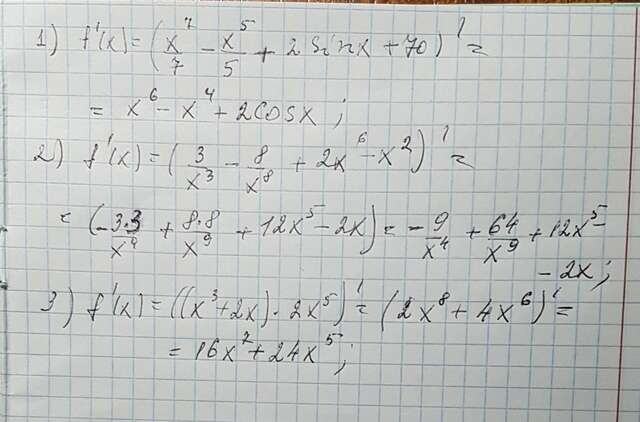 1) f'(x) = (x^7/7 - x^5/5 + 2 sin x + 70)' =
= x^6 - x^4 + 2cosx ;
2) f'(x) = (3/x^3 - 8/x^8 + 2x^6 - x^2)' =
= (-3·3/x^4 + 8·8/x^9 + 12x^5 - 2x) = -9/x^4 + 64/x^9 + 12x^5 -
- 2x ;
3) f'(x) = ((x^3 + 2x) · 2x^5)' = (2x^8 + 4x^6)' =
= 16x^7 + 24x^5 ;